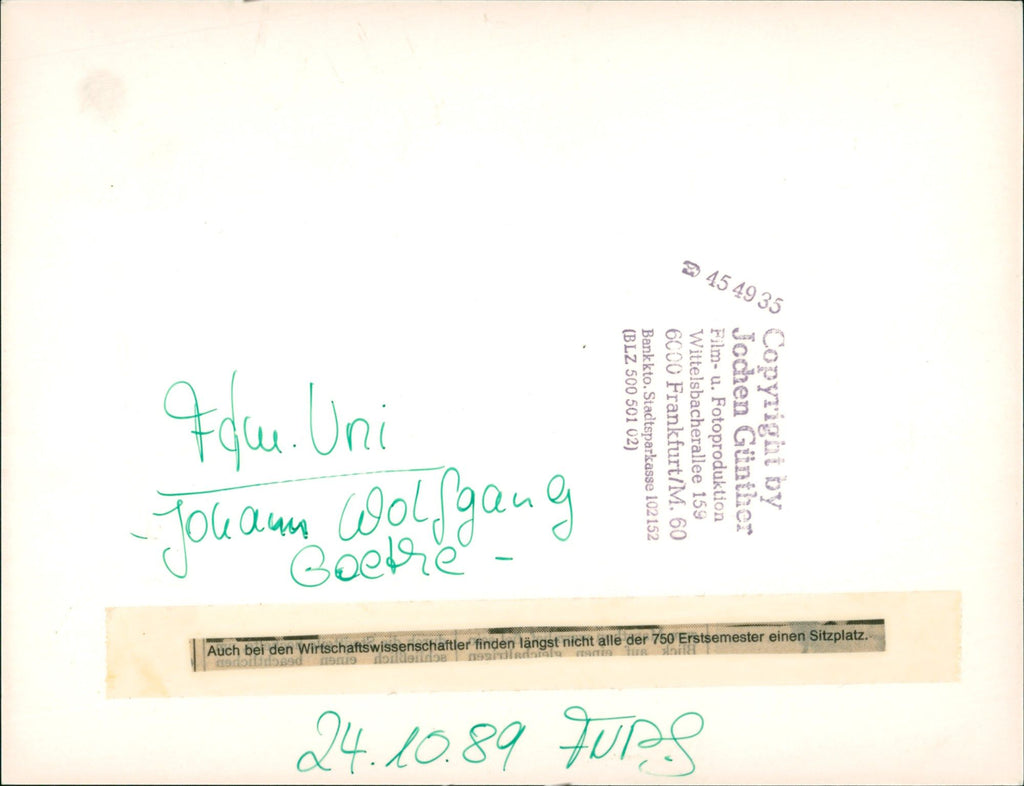 ☎ 45 49 35
Copyright by
Jochen Günther
Film- u. Fotoproduktion
Wittelsbacherallee 159
6000 Frankfurt/M. 60
Bankkto. Stadtsparkasse 102152
(BLZ 500 501 02)
Uni
- Johann Wolfgang
Goethe -
Auch bei den Wirtschaftswissenschaftler finden längst nicht alle der 750 Erstsemester einen Sitzplatz.
24.10.89